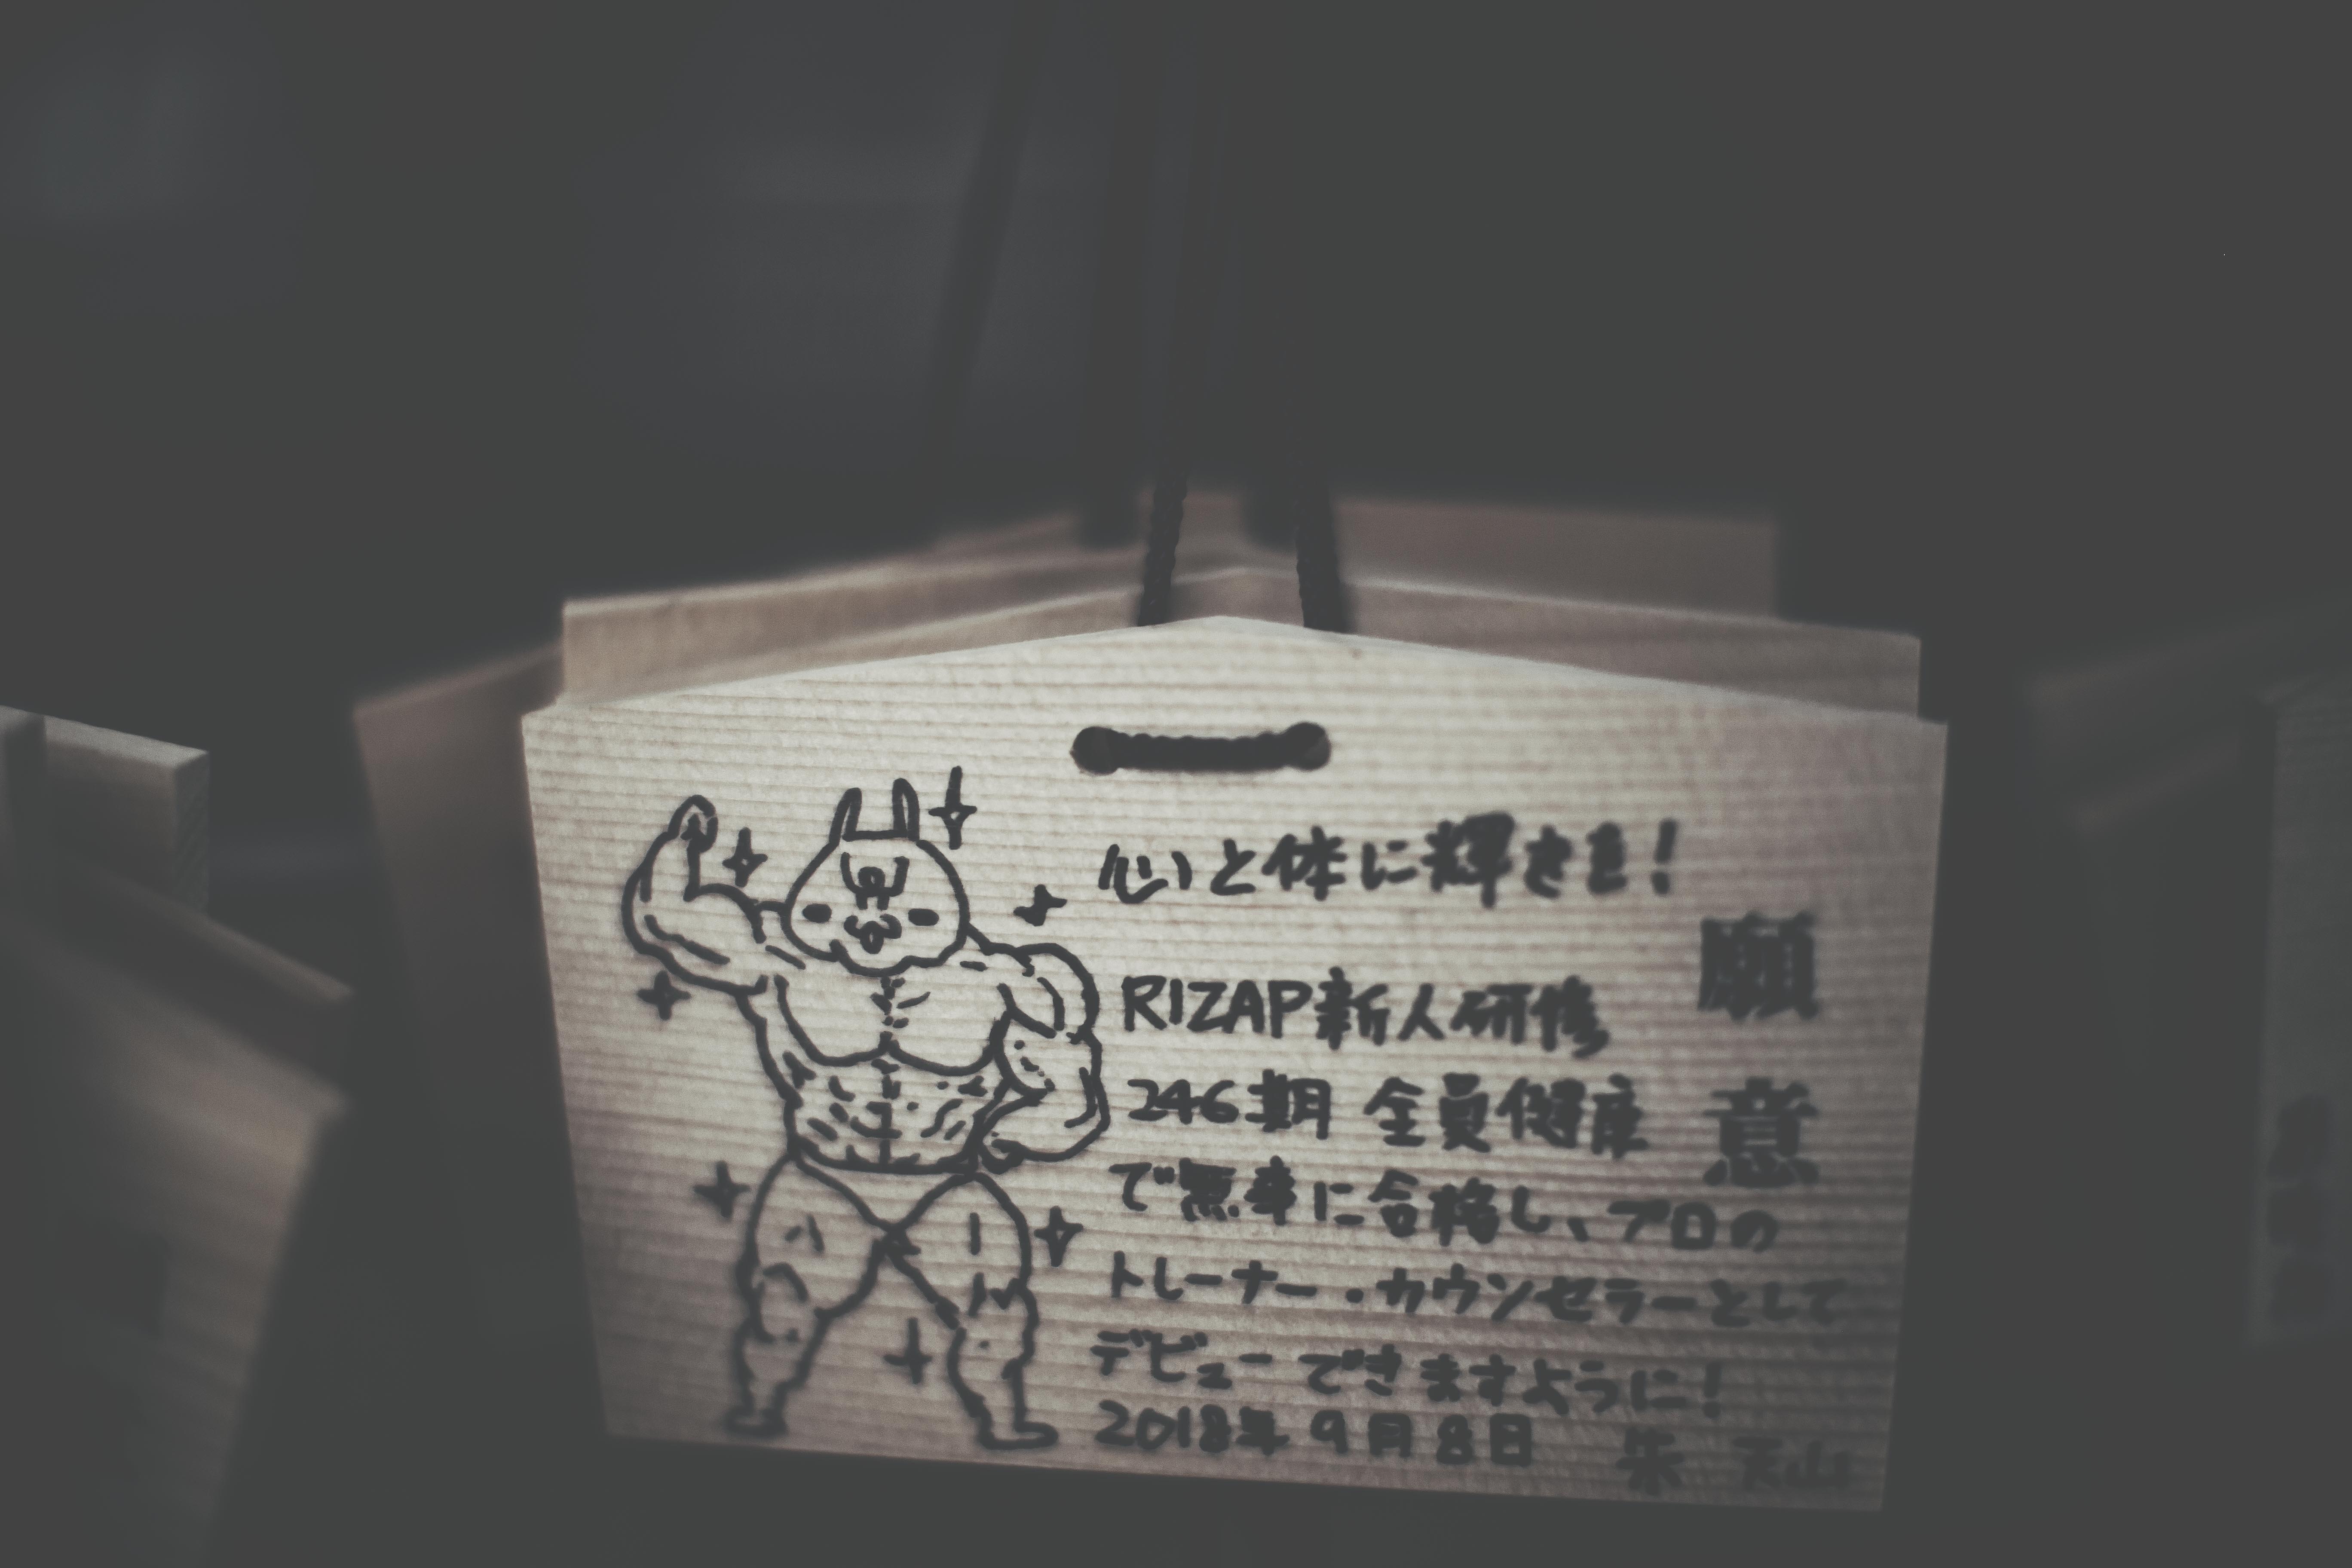 心と体に輝きを!
願意
RIZAP新人研修
246期 全員健康
で無事に合格し、プロの
トレーナー・カウンセラーとして
デビューできますように!
2018年9月8日 朱 天山